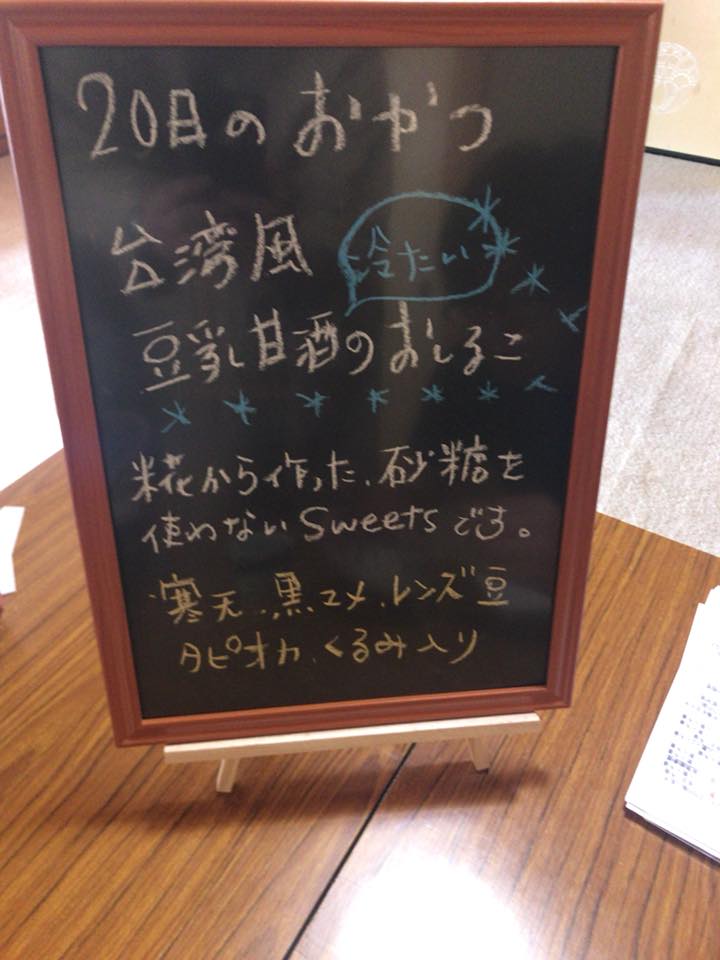 20日のおやつ
台湾風
冷たい
豆乳甘酒のおしるこ
糀から作った、砂糖を
使わないSweetsです。
寒天、黒マメ、レンズ豆
タピオカ、くるみ入り